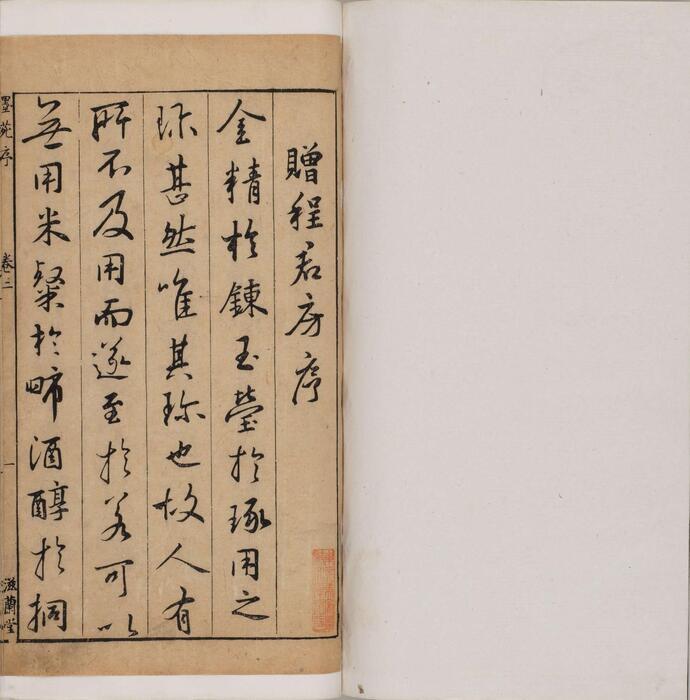 贈程君房序
金精於鍊玉瑩於琢用之
珎甚然唯其珎也故人有
所不及用而遂至於若可以
無用米粲於㫲酒醇於挏
墨苑序
卷三
一
滋蘭堂